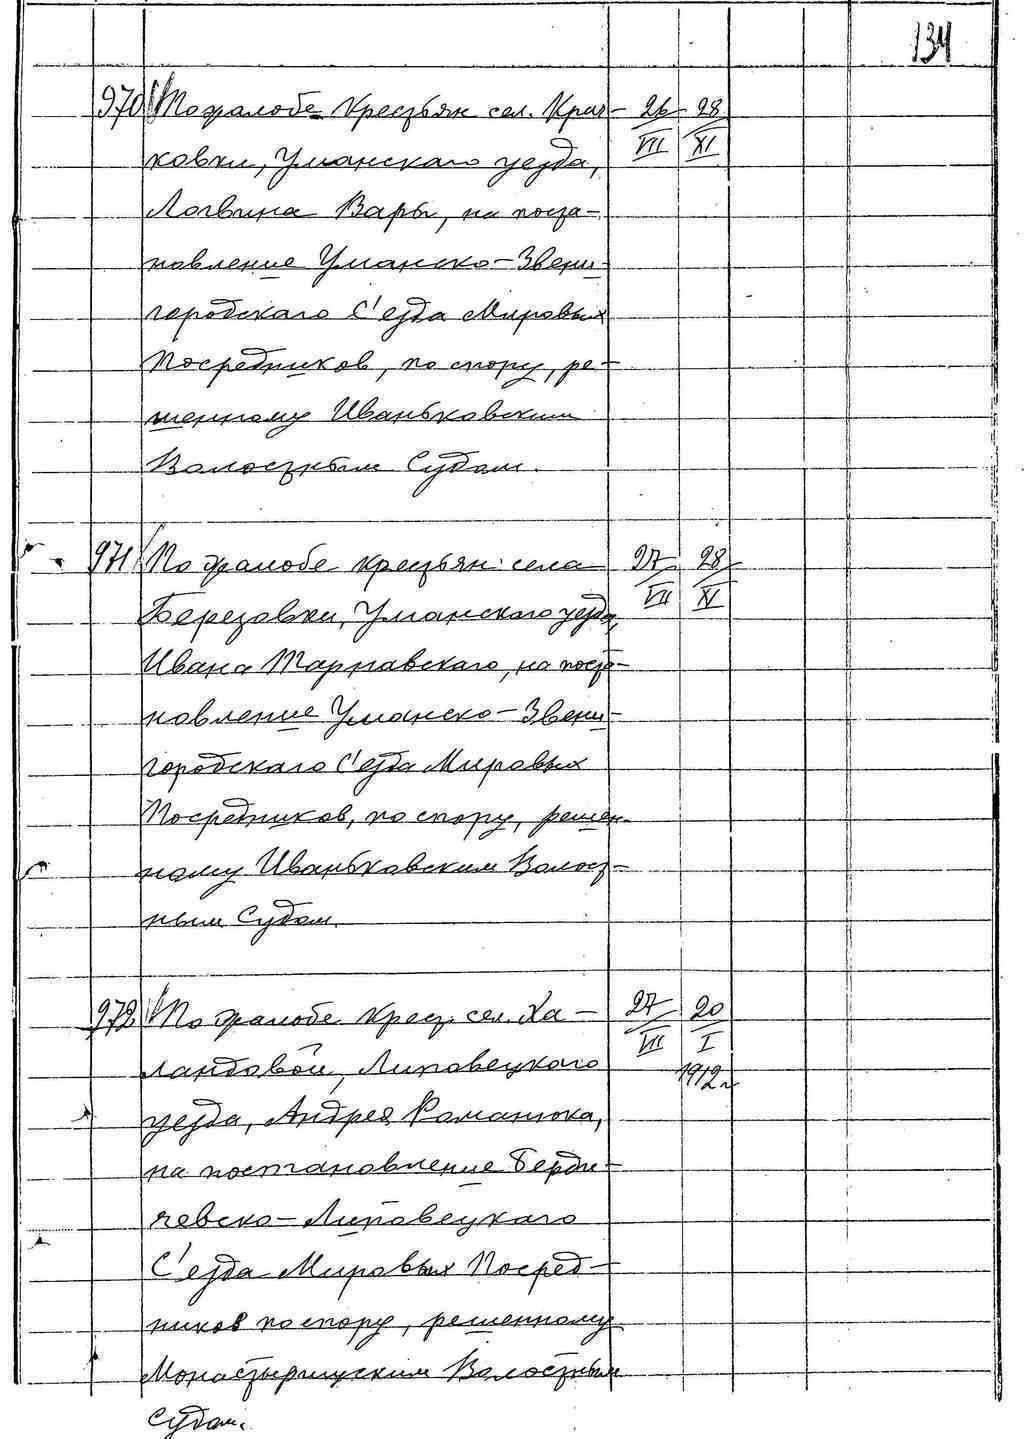 134
970 По жалобе Крестьян сел. Крач- 26/VII 28/XI
ковки, Уманскаго уезда,
Логвина Вары, на поста-
новление Уманско-Звени-
городскаго С'езда Мировых
Посредников, по спору, ре-
шенному Иваньковским
Волостным Судом.
971 По жалобе крестьян. села 27/VII 28/XI
Березовки, Уманскаго уезда,
Ивана Тарнавскаго, на поста-
новление Уманско-Звени-
городскаго С'езда Мировых
Посредников, по спору, решен-
ному Иваньковским Волост-
ным Судом.
972 По жалобе Крест. сел. Ха- 27/VII 20/I
ландовой, Липовецкаго 1912 г.
уезда, Андрея Романюка,
на постановление Берди-
чевско-Липовецкаго
С'езда Мировых Посред-
ников по спору, решенному
Монастырищским Волостным
Судом.